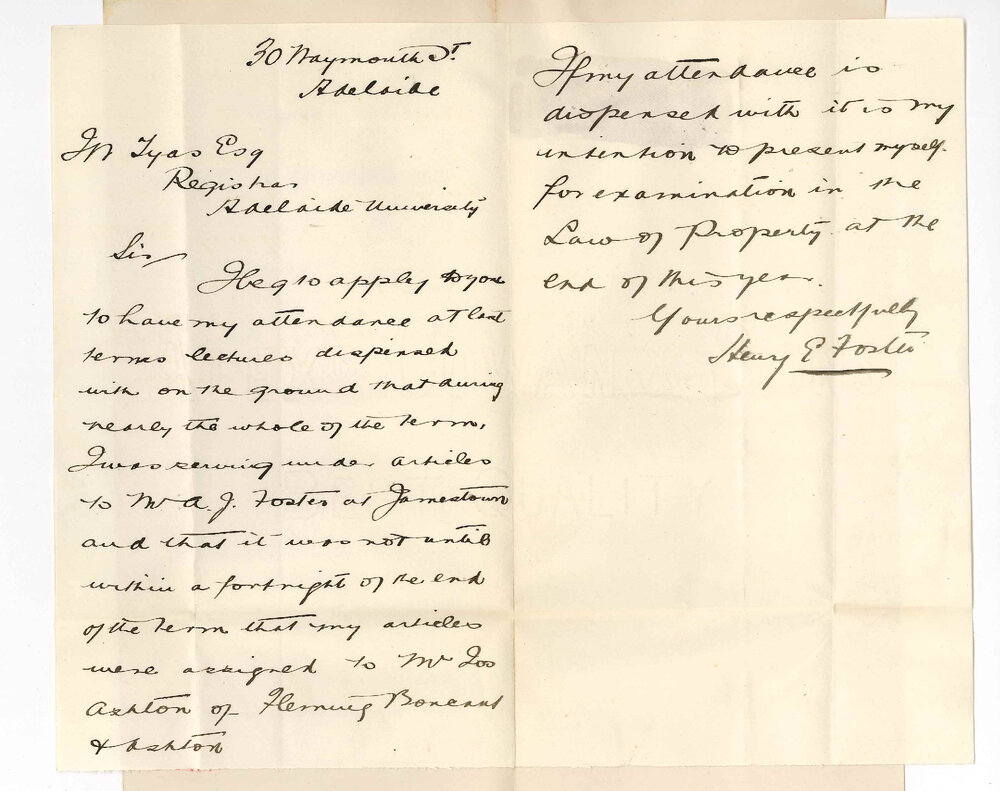 30 Waymouth St
Adelaide
JW Tyas Esq
Registrar
Adelaide University
Sir
I beg to apply to you
to have my attendance at last
terms lectures dispensed
with on the ground that during
nearly the whole of the term,
I was serving under articles
to Mr A. J. Foster at Jamestown
and that it was not until
within a fortnight of the end
of the term that my articles
were assigned to Mr Jos
Ashton of Fleming Boucaut
& Ashton
If my attendance is
dispensed with it is my
intention to present myself
for examination in the
Law of Property at the
end of this year.
Yours respectfully
Henry E Foster